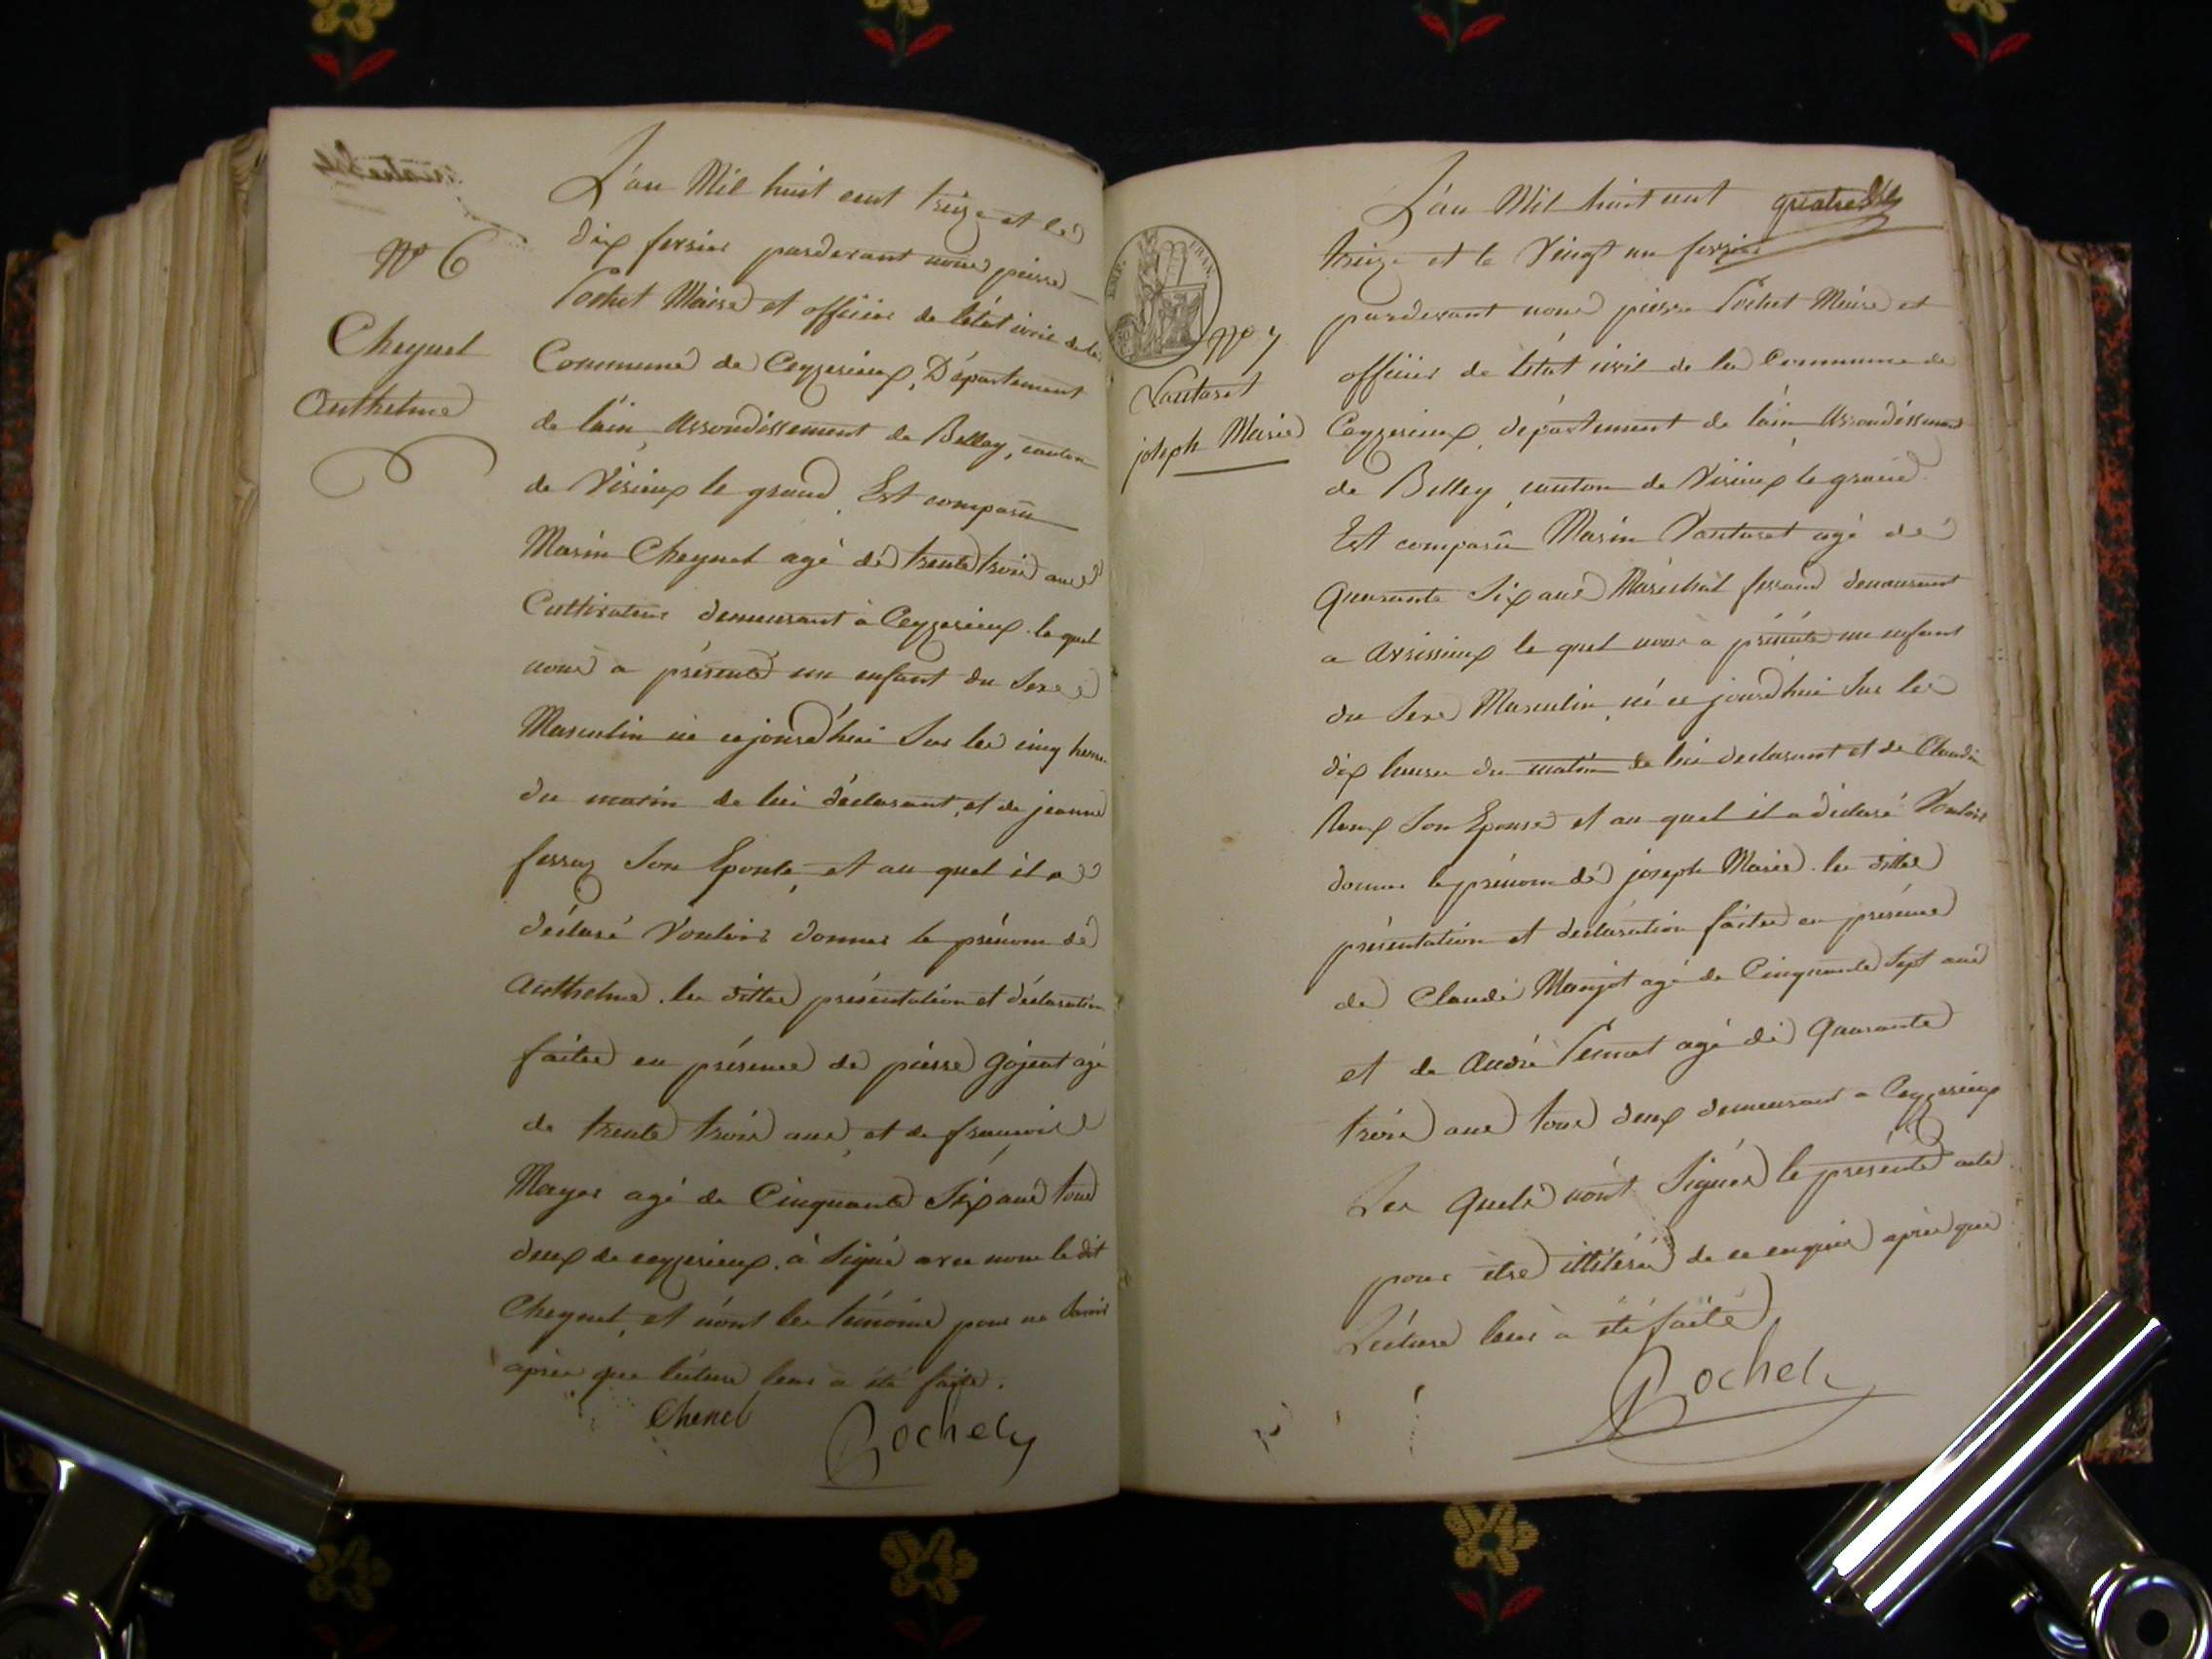 N° 6
Cheynet
Anthelme
L'an Mil huit cent treize et le
dix fevrier pardevant nous pierre
Cochet Maire et officier de l'état civil de la
Commune de Ceyzerieux, Département
de l'ain, Arrondissement de Belley, canton
de Virieux le grand, Est comparû
Marin Cheynet agé de trente trois ans
Cultivateur demeurant à Ceyzerieux le quel
nous a présenté un enfant du Sexe
Masculin né cejourd'hui Sur les cinq heures
du matin de lui déclarant, et de jeanne
ferraz Son Epouse, et au quel il a
déclaré Vouloir donner le prénom de
Anthelme. les dittes présentation et déclaration
faites en présence de pierre Gojeat agé
de trente trois ans, et de françois
Mayer agé de Cinquante Six ans tous
deux de ceyzerieux. à Signé avec nous le dit
Cheynet, et n'ont les témoins pour ne Savoir
après que lecture leur à été faite.
Chenel
Cochet
quatre
EMP. FRAN.
N° 7
Vautaret
joseph Marie
L'an Mil huit cent
treize et le Vingt un fevrier
pardevant nous pierre Cochet Maire et
officier de l'état civil de la Commune de
Ceyzerieux, département de l'ain Arrondissement
de Belley, canton de Virieux le grand.
Est comparû Marin Vautaret agé de
Quarante Six ans Maréchal ferrand demeurant
a Avrissieux le quel nous a présenté un enfant
du Sexe Masculin, né ce jourd'hui Sur les
dix heures du matin de lui declarant et de Claudine
Roux Son Epouse et au quel il a déclaré Vouloir
donner le prénom de joseph Marie. les dittes
présentation et declaration faites en présence
de Claude Manjot agé de Cinquante Sept ans
et de André Pernet agé de Quarante
trois ans tous deux demeurant a Ceyzerieux
Les Quels n'ont Signés le présente acte
pour être illitérés de ce enquis après que
Lecture leur à été faite
Cochet